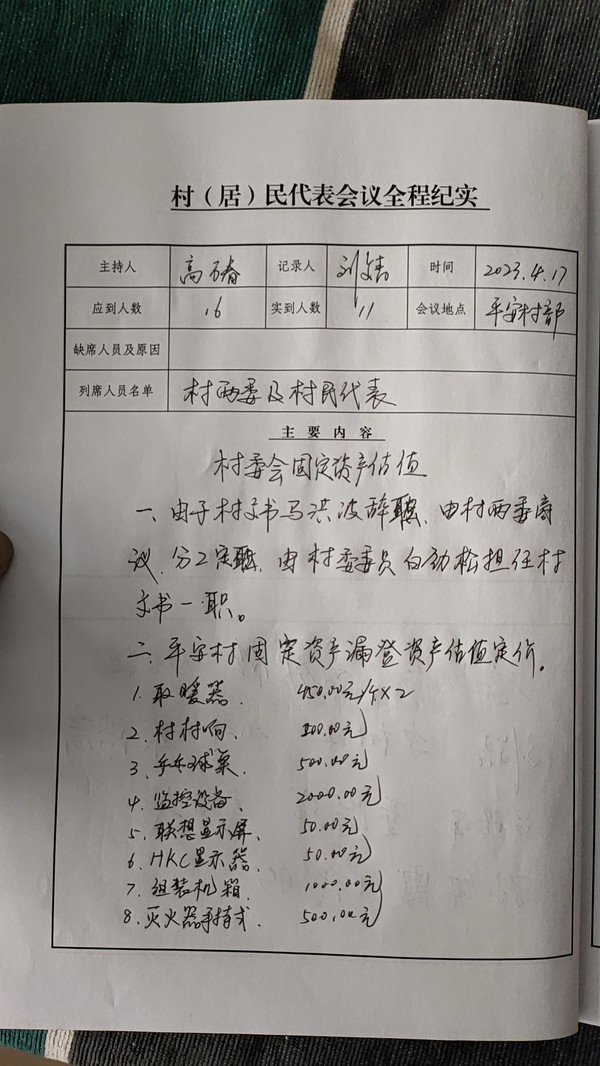 村（居）民代表会议全程纪实
主持人 高 春 记录人 刘 时间 2023.4.17
应到人数 16 实到人数 11 会议地点 平安村部
缺席人员及原因
列席人员名单 村两委及村民代表
主要内容
村委会固定资产估值
一、由于村文书马洪波辞职、由村两委商
议、分工定职、由村委委员白劲松担任村
文书一职。
二、平安村固定资产漏登资产估值定价。
1.取暖器. 450.00元/个×2
2.村村响. 00.00元
3.乒乓球桌. 500.00元
4.监控设备. 2000.00元
5.联想显示屏. 50.00元
6.HKC显示器. 50.00元
7.组装机箱. 1000.00元
8.灭火器手持式. 500.00元